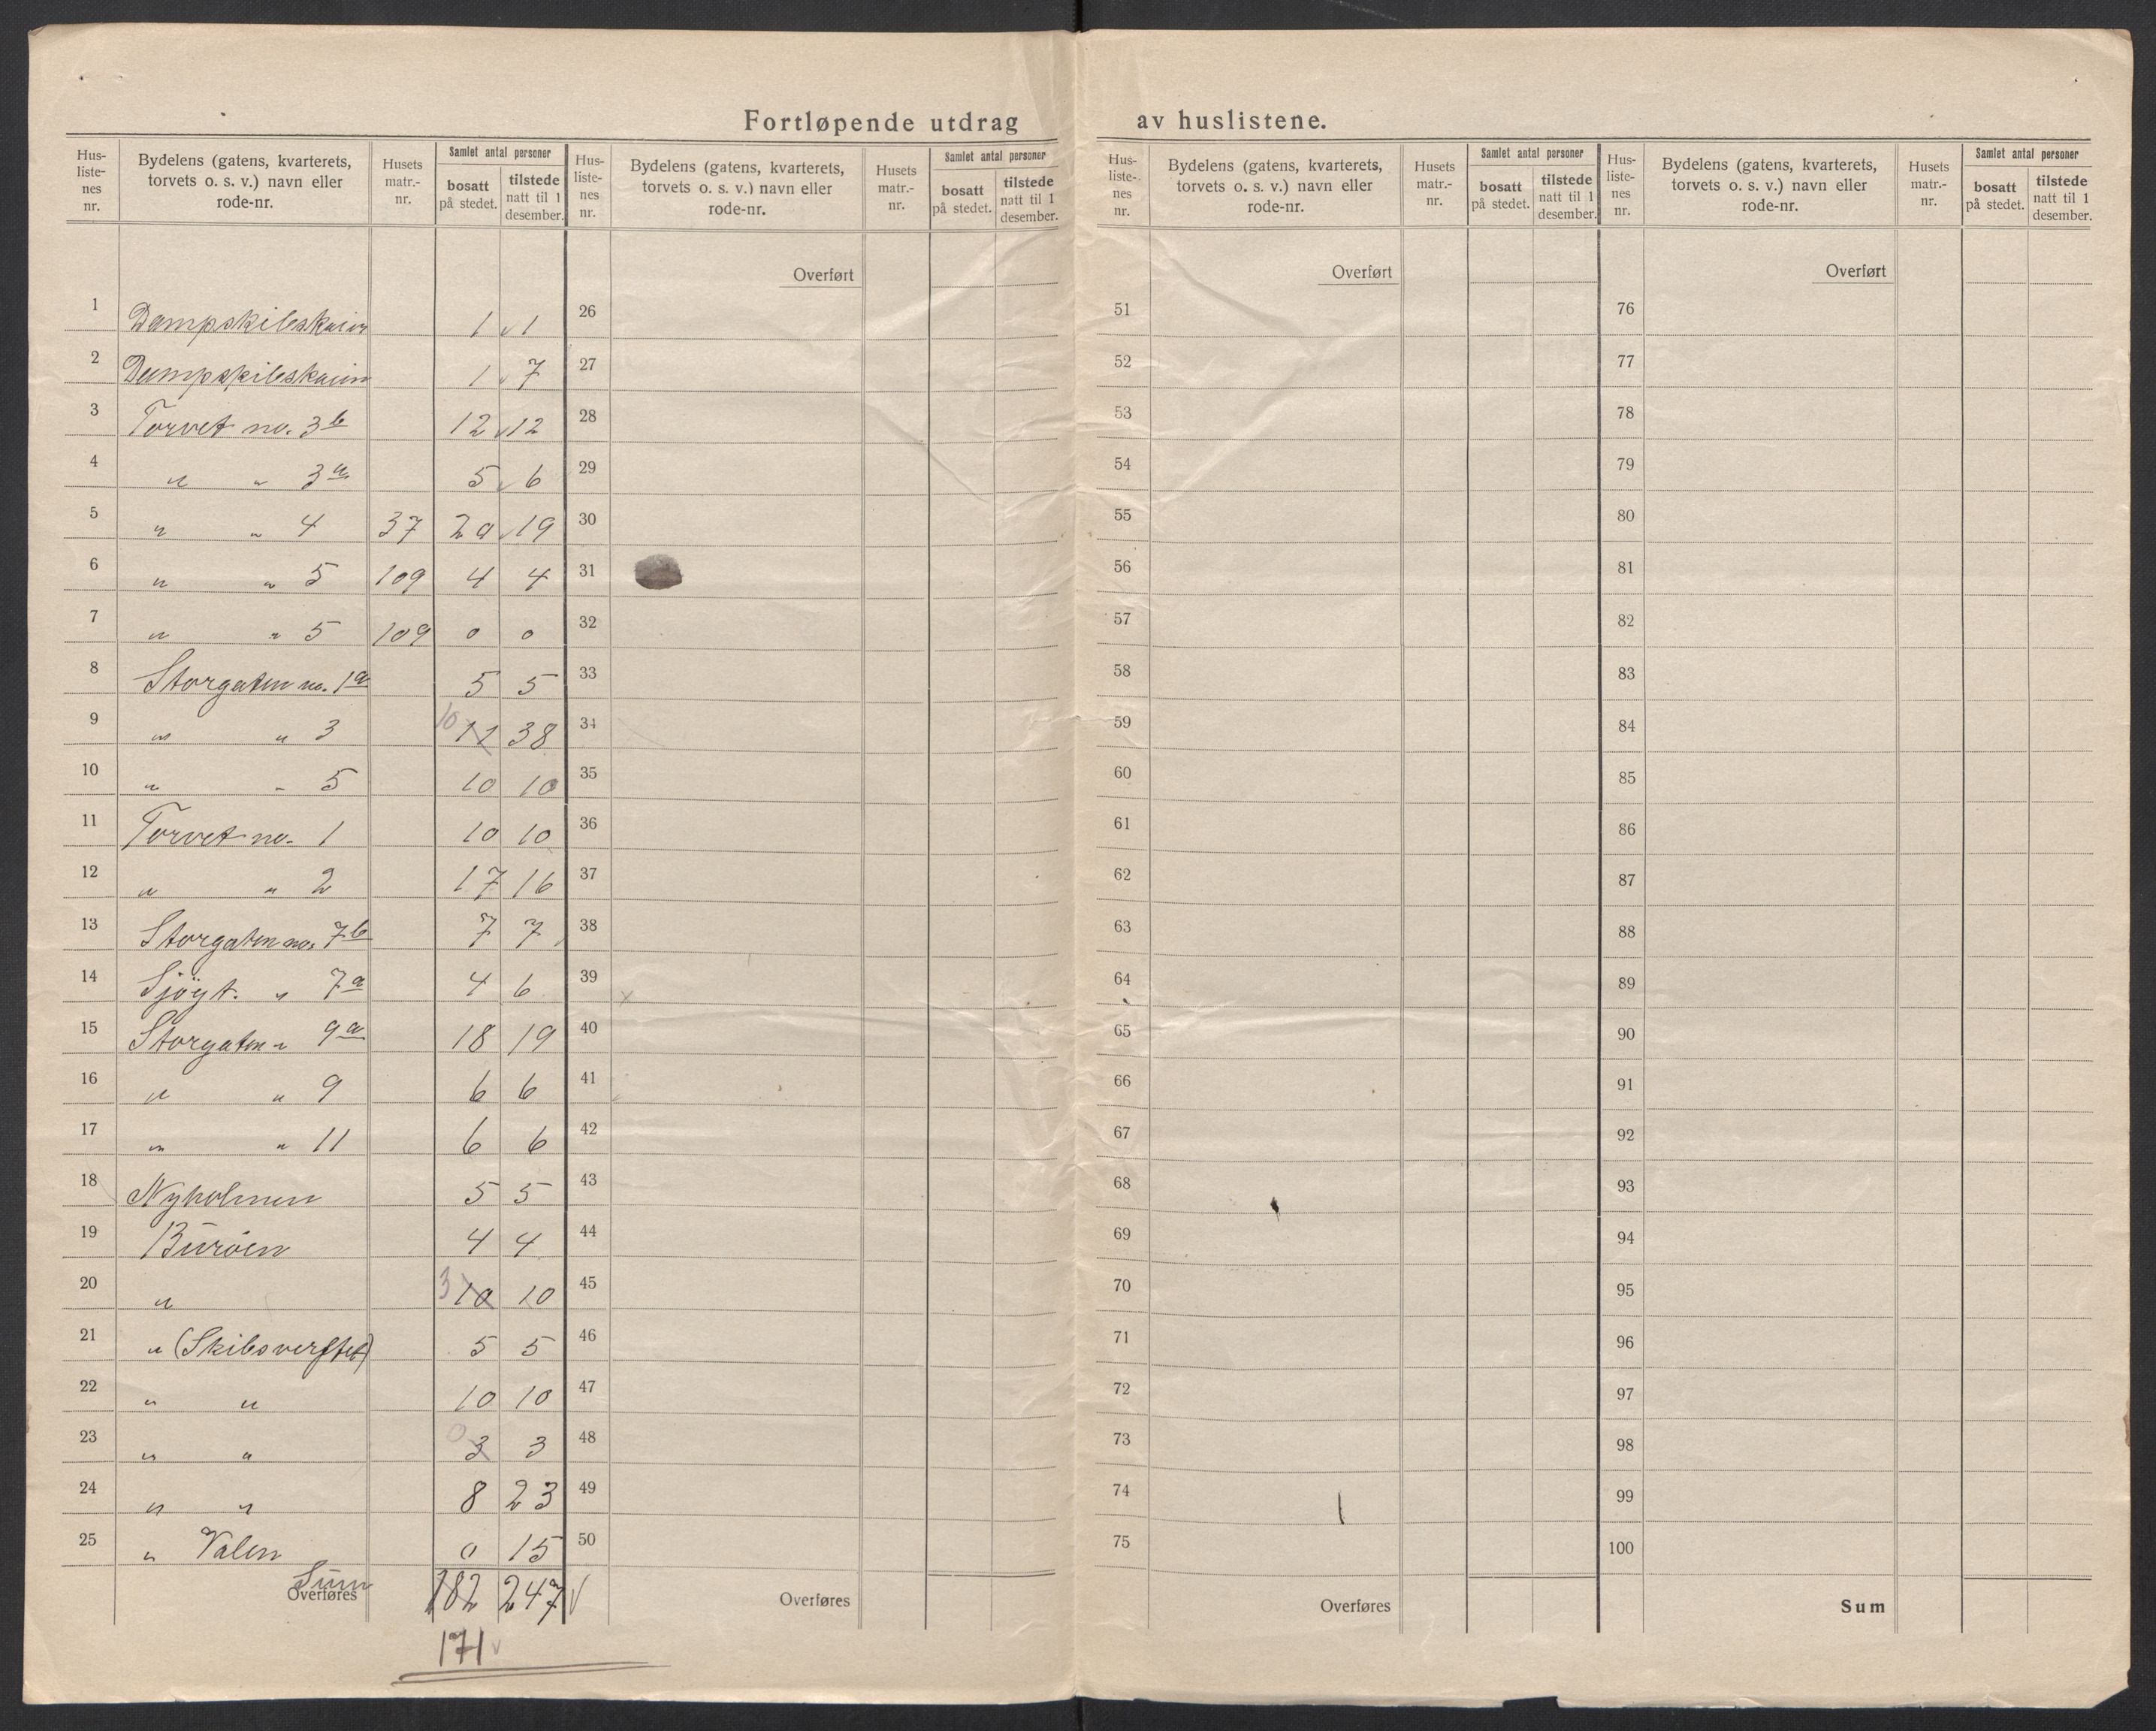 Fortløpende utdrag av huslistene.
Hus-liste-nes nr. | Bydelens (gatens, kvarterets, torvets o. s. v.) navn eller rode-nr. | Husets matr.-nr. | Samlet antal personer | bosatt på stedet. | tilstede natt til 1 desember.
1 Dampskibskaien 1 1
2 Dampskibskaien 1 7
3 Torvet no. 3b 12 12
4 " " 3a 5 6
5 " " 4 37 20 19
6 " " 5 109 4 4
7 " " 5 109 0 0
8 Storgaten no. 1a 5 5
9 " " 3 10 11 38
10 " " 5 10 10
11 Torvet no. 1 10 10
12 " " 2 17 16
13 Storgaten no. 7b 7 7
14 Sjögt. " 7a 4 6
15 Storgaten " 9a 18 19
16 " " 9 6 6
17 " " 11 6 6
18 Nyholmen 5 5
19 Buröen 4 4
20 " 3 10 10
21 " (Skibsverftet) 5 5
22 " " 10 10
23 " " 0 3 3
24 " " 8 23
25 " Valen 0 15
Sum
Overføres 182 247
171
Hus-liste-nes nr. | Bydelens (gatens, kvarterets, torvets o. s. v.) navn eller rode-nr. | Husets matr.-nr. | Samlet antal personer | bosatt på stedet. | tilstede natt til 1 desember.
Overført
26
27
28
29
30
31
32
33
34
35
36
37
38
39
40
41
42
43
44
45
46
47
48
49
50
Overføres
Hus-liste-nes nr. | Bydelens (gatens, kvarterets, torvets o. s. v.) navn eller rode-nr. | Husets matr.-nr. | Samlet antal personer | bosatt på stedet. | tilstede natt til 1 desember.
Overført
51
52
53
54
55
56
57
58
59
60
61
62
63
64
65
66
67
68
69
70
71
72
73
74
75
Overføres
Hus-liste-nes nr. | Bydelens (gatens, kvarterets, torvets o. s. v.) navn eller rode-nr. | Husets matr.-nr. | Samlet antal personer | bosatt på stedet. | tilstede natt til 1 desember.
Overført
76
77
78
79
80
81
82
83
84
85
86
87
88
89
90
91
92
93
94
95
96
97
98
99
100
Sum